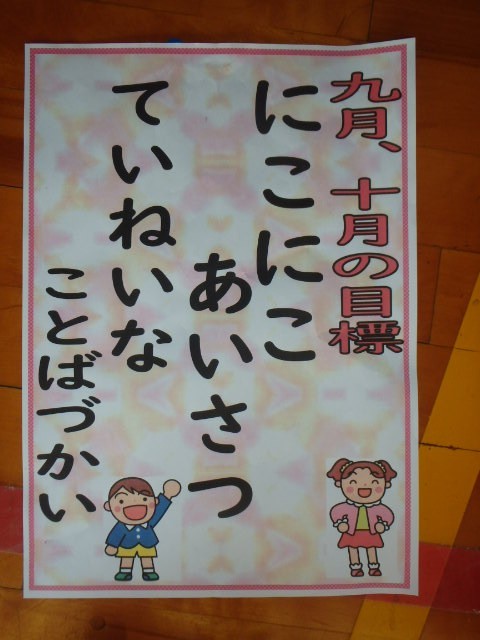 九月、十月の目標
にこにこ
あいさつ
ていねいな
ことばづかい